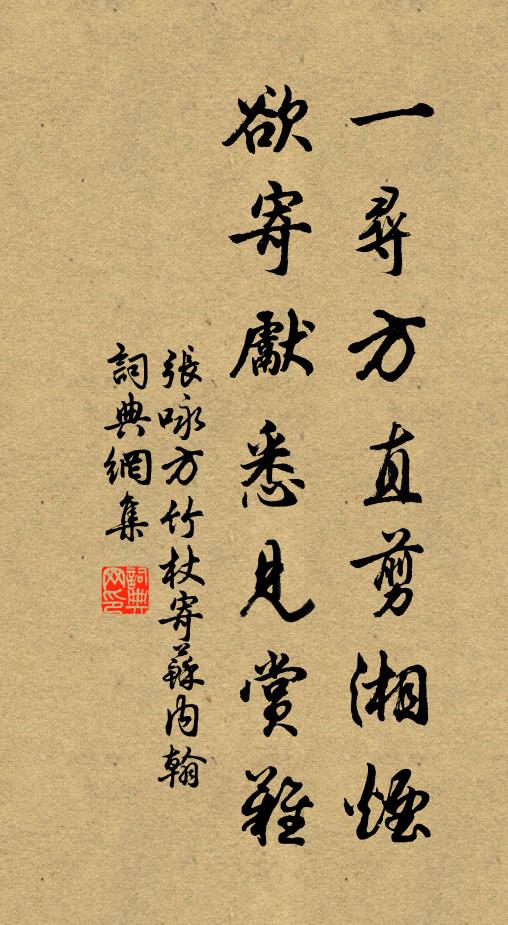 一尋方直剪湘煙
欲寄獻悉見賞難
張咏方竹杖寄蘇內翰
詞典網集
詞典
网印